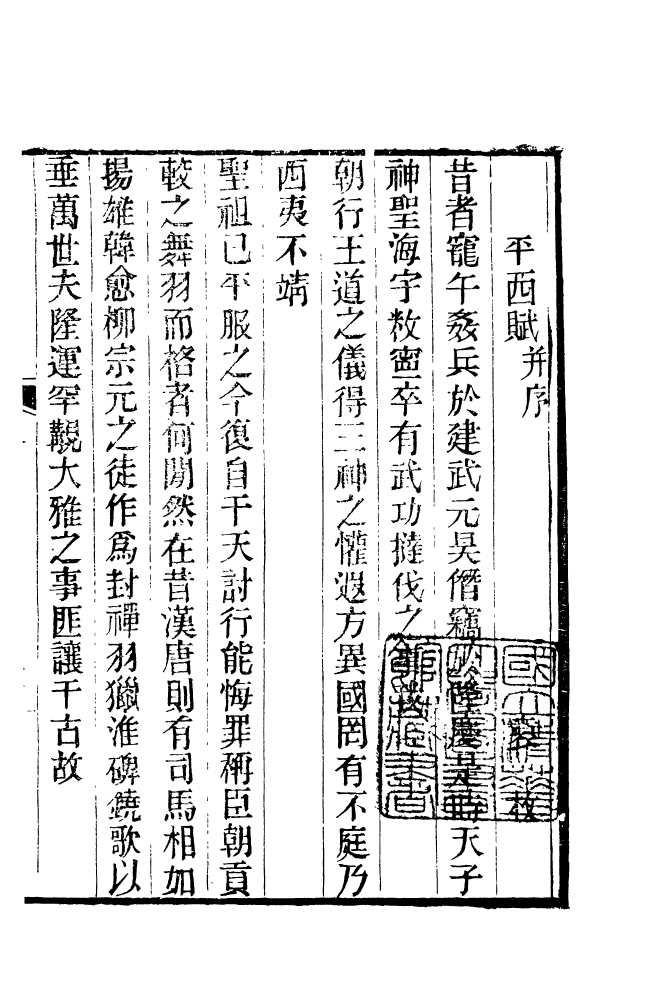 平西賦并序
昔者寵午姦兵於建武元昊僭竊於隆慶是時天子
神聖海宇敉寧卒有武功撻伐之
朝行王道之儀得三神之懽遐方異國罔有不庭乃
西夷不靖
聖祖已平服之今復自干天討行能悔罪稱臣朝貢
較之舞羽而格者何閒然在昔漢唐則有司馬相如
揚雄韓愈柳宗元之徒作爲封禪羽獵淮碑鐃歌以
垂萬世夫隆運罕覯大雅之事匪讓千古故